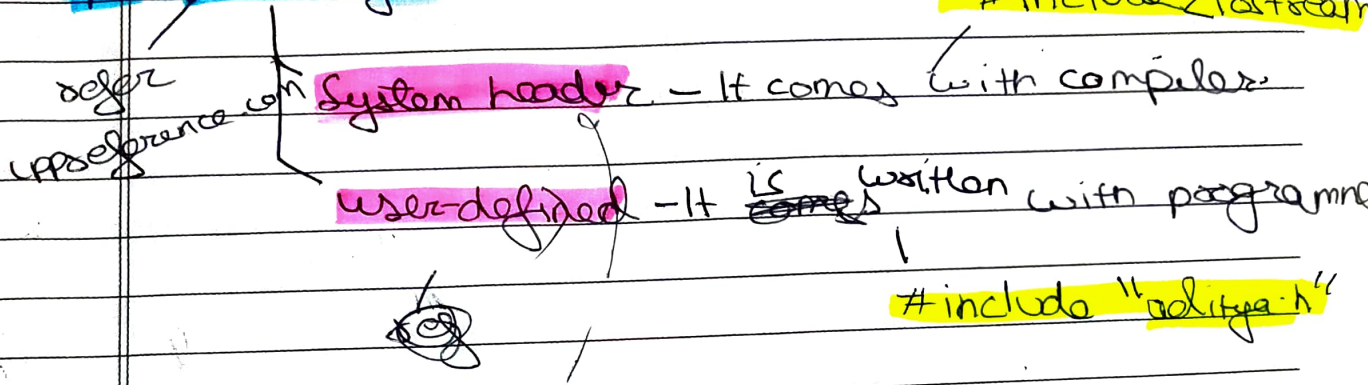 #include <iostream
refer
cppreference.com
System header - It comes with compiler.
user-defined - It is written with programme
#include "aditya.h"